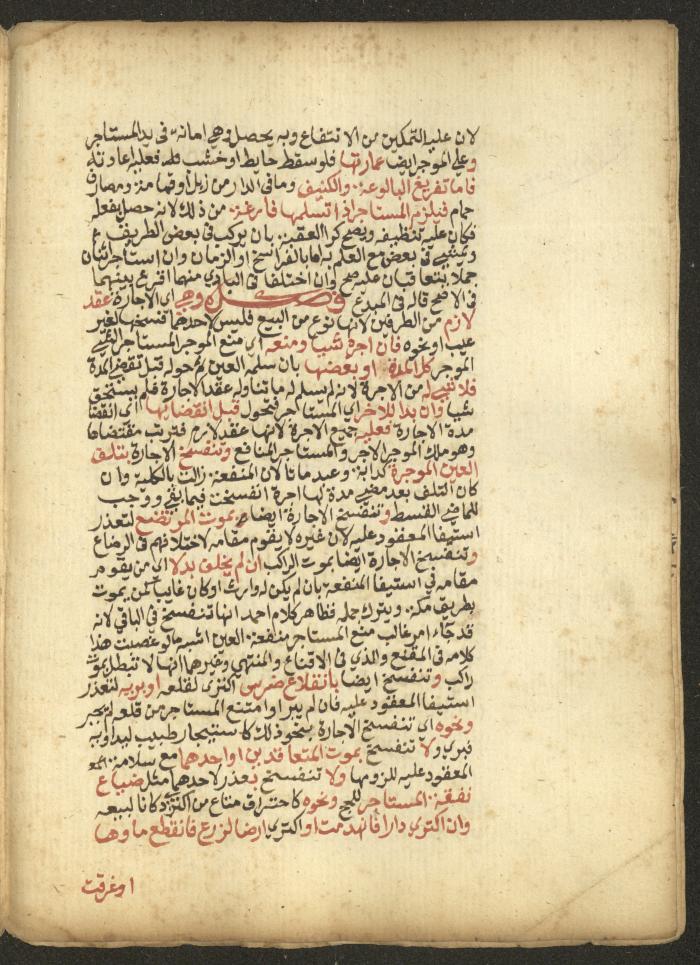 لان عليه التمكين من الانتفاع وبه يحصل وهي امانة في يد المستاجر
وعلى الموجر ايضا عمارتها فلو سقط حايط او خشب فله فعليه اعادته
فاما تفريغ البالوعة والكنيف وما في الدار من زبل او قمامة ومصارف
حمام فيلزم المستاجر اذا تسلمها فارغة من ذلك لانه حصل بفعله
فكان عليه تنظيفه ويصح كرا العقبة بان يركب في بعض الطريق
ويمشي في بعض مع العلم به اما بالفراسخ او الزمان وان استاجر اثنان
جملا يتعاقبان عليه صح وان اختلفا في البادي منهما اقرع بينهما
في الاصح قاله في المبدع فصل وهي اي الاجارة عقد
لازم من الطرفين لانها نوع من البيع فليس لاحدهما فسخها لغير
عيب او نحوه فان اجره شيا ومنعه اي منع الموجر المستاجر الشي
الموجر كل المدة او بعضها بان سلمه العين ثم حوله قبل تقضي المدة
فلا شي له من الاجرة لانه لم يسلم له ما تناوله عقد الاجارة فلم يستحق
شيا وان بدا للاخر اي المستاجر فتحول قبل انقضائها اي انقضا
مدة الاجارة فعليه جميع الاجرة لانها عقد لازم فترتب مقتضاها
وهو ملك الموجر الاجر والمستاجر المنافع وتنفسخ الاجارة بتلف
العين الموجرة كدابة وعبد ماتا لان المنفعة زالت بالكلية وان
كان التلف بعد مضي مدة لها اجرة انفسخت فيما بقي ووجب
للماضي القسط وتنفسخ الاجارة ايضا بموت المرتضع لتعذر
استيفا المعقود عليه لان غيره لا يقوم مقامه لاختلافهم في الرضاع
وتنفسخ الاجارة ايضا بموت الراكب ان لم يخلف بدلا اي من يقوم
مقامه في استيفا المنفعة بان لم يكن له وارث او كان غايبا كمن يموت
بطريق مكة ويترك جمله فظاهر كلام احمد انها تنفسخ في الباقي لانه
قد جاء امر غالب منع المستاجر منفعة العين اشبه ما لو غصبت هذا
كلامه في المقنع والذي في الاقناع والمنتهى وغيرهما انها لا تبطل بموت
راكب وتنفسخ ايضا بانقلاع ضرس اكترى لقلعه او بريه لتعذر
استيفا المعقود عليه فان لم يبرا وامتنع المستاجر من قلعه لم يجبر
ونحوه اي تنفسخ الاجارة بنحو ذلك كاستيجار طبيب ليداويه
فبري ولا تنفسخ بموت المتعاقدين او احدهما مع سلامة
المعقود عليه للزومها ولا تنفسخ بعذر لاحدهما مثل ضياع
نفقة المستاجر للحج ونحوه كاحتراق متاع من اكترى دكانا لبيعه
وان اكترى دارا فانهدمت او اكترى ارضا لزرع فانقطع ماوها
او غرقت